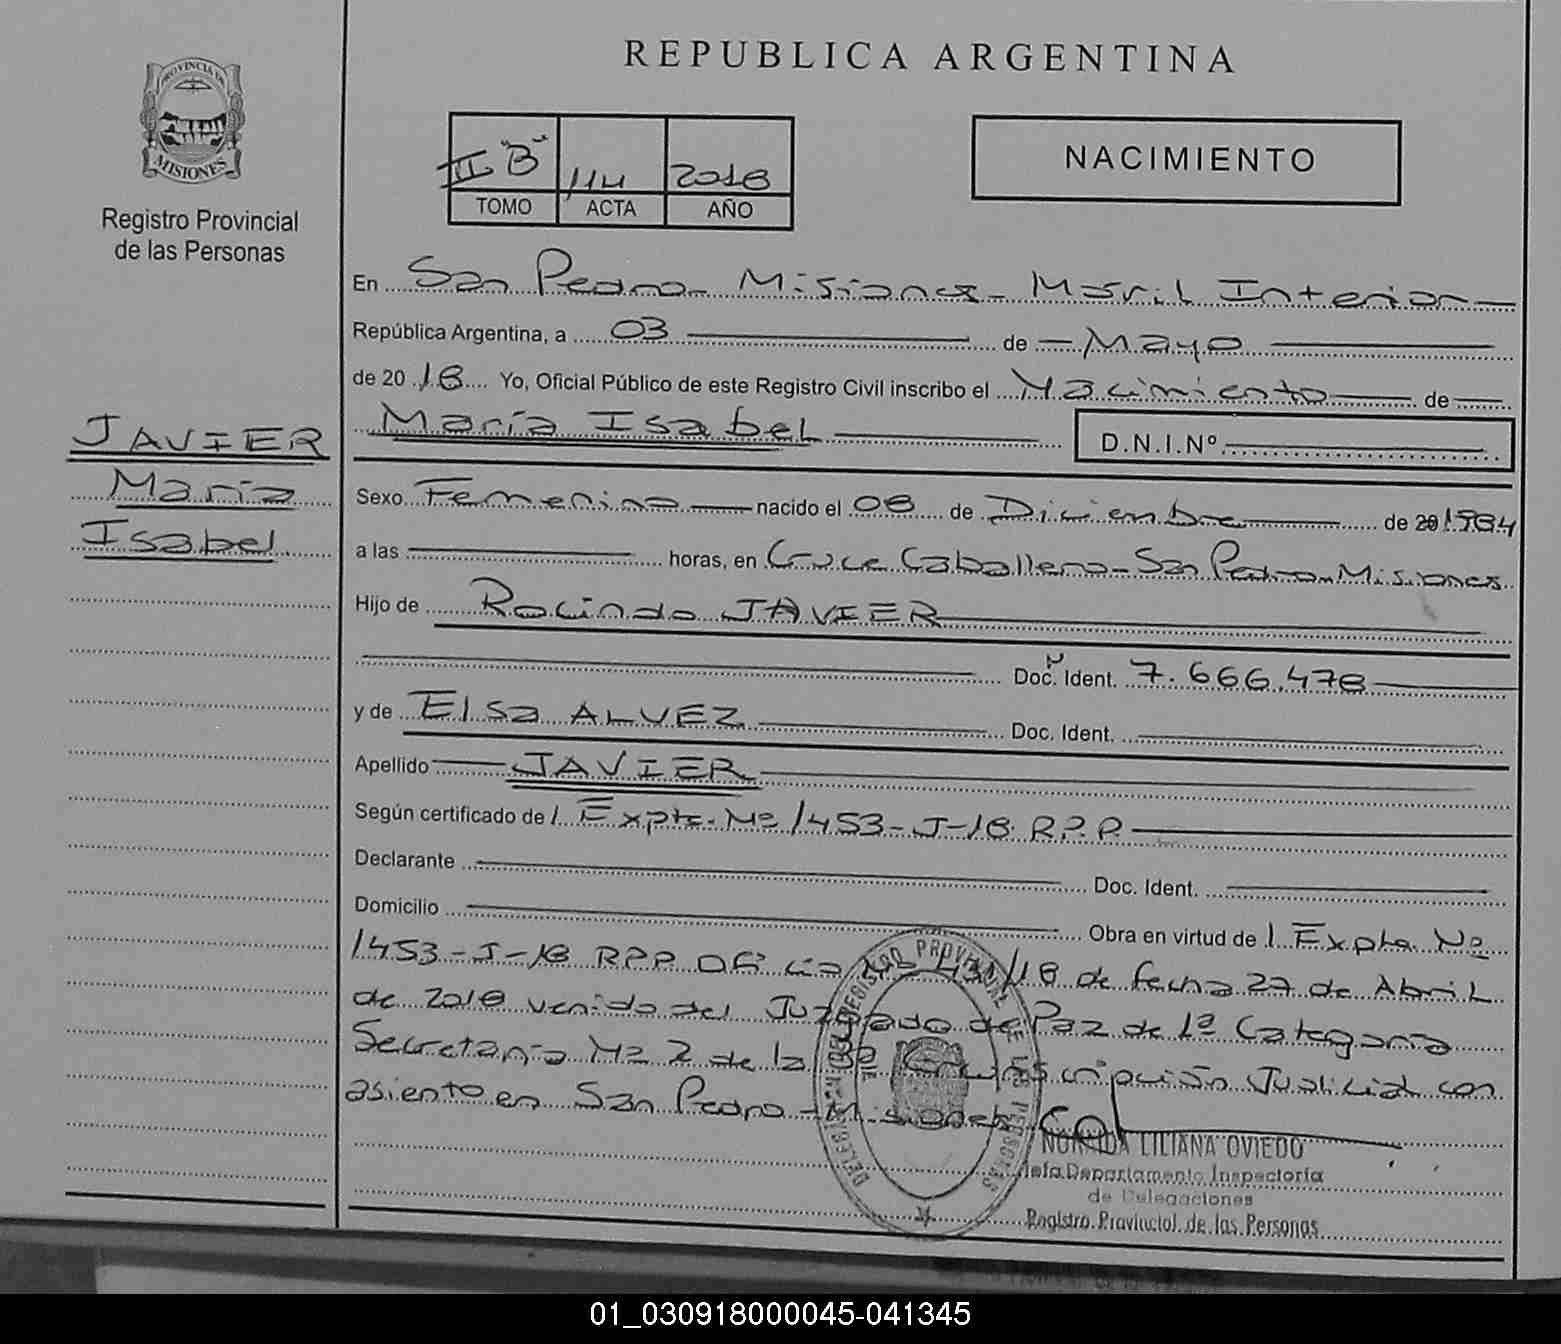 REPUBLICA ARGENTINA
PROVINCIA DE
MISIONES
Registro Provincial
de las Personas
II "B" 114 2018
TOMO ACTA AÑO
NACIMIENTO
JAVIER
María
Isabel
En San Pedro - Misiones - Móvil Interior
República Argentina, a 03 de Mayo
de 2018 Yo, Oficial Público de este Registro Civil inscribo el Nacimiento de
María Isabel D.N.I.Nº
Sexo Femenino nacido el 08 de Diciembre de 20 1984
a las horas, en Cruce Caballero - San Pedro - Misiones
Hijo de Rocindo JAVIER
Doc. Ident. 7.666.478
y de Elsa ALVEZ Doc. Ident.
Apellido JAVIER
Según certificado de / Expte. Nº 1453-J-18 R.P.P.
Declarante Doc. Ident.
Domicilio Obra en virtud de / Expte. Nº
1453-J-18 RPP Oficio Nº /18 de fecha 27 de Abril
de 2018 venido del Juzgado de Paz de 1ª Categoria
Secretaría Nº 2 de la Circunscripción Judicial con
asiento en San Pedro - Misiones
LILIANA OVIEDO
Jefa Departamento Inspectoría
de Delegaciones
Registro Provincial de las Personas
01_030918000045-041345